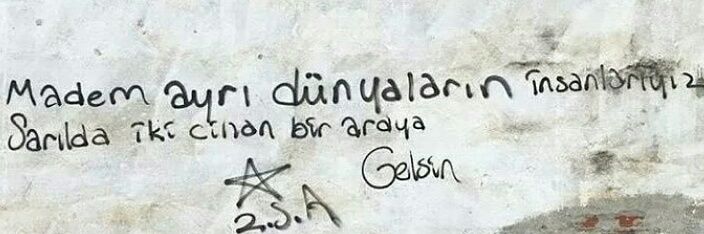 Madem ayrı dünyaların insanlarıyız
Sarılda iki cihan bir araya
Gelsin
2.S.A